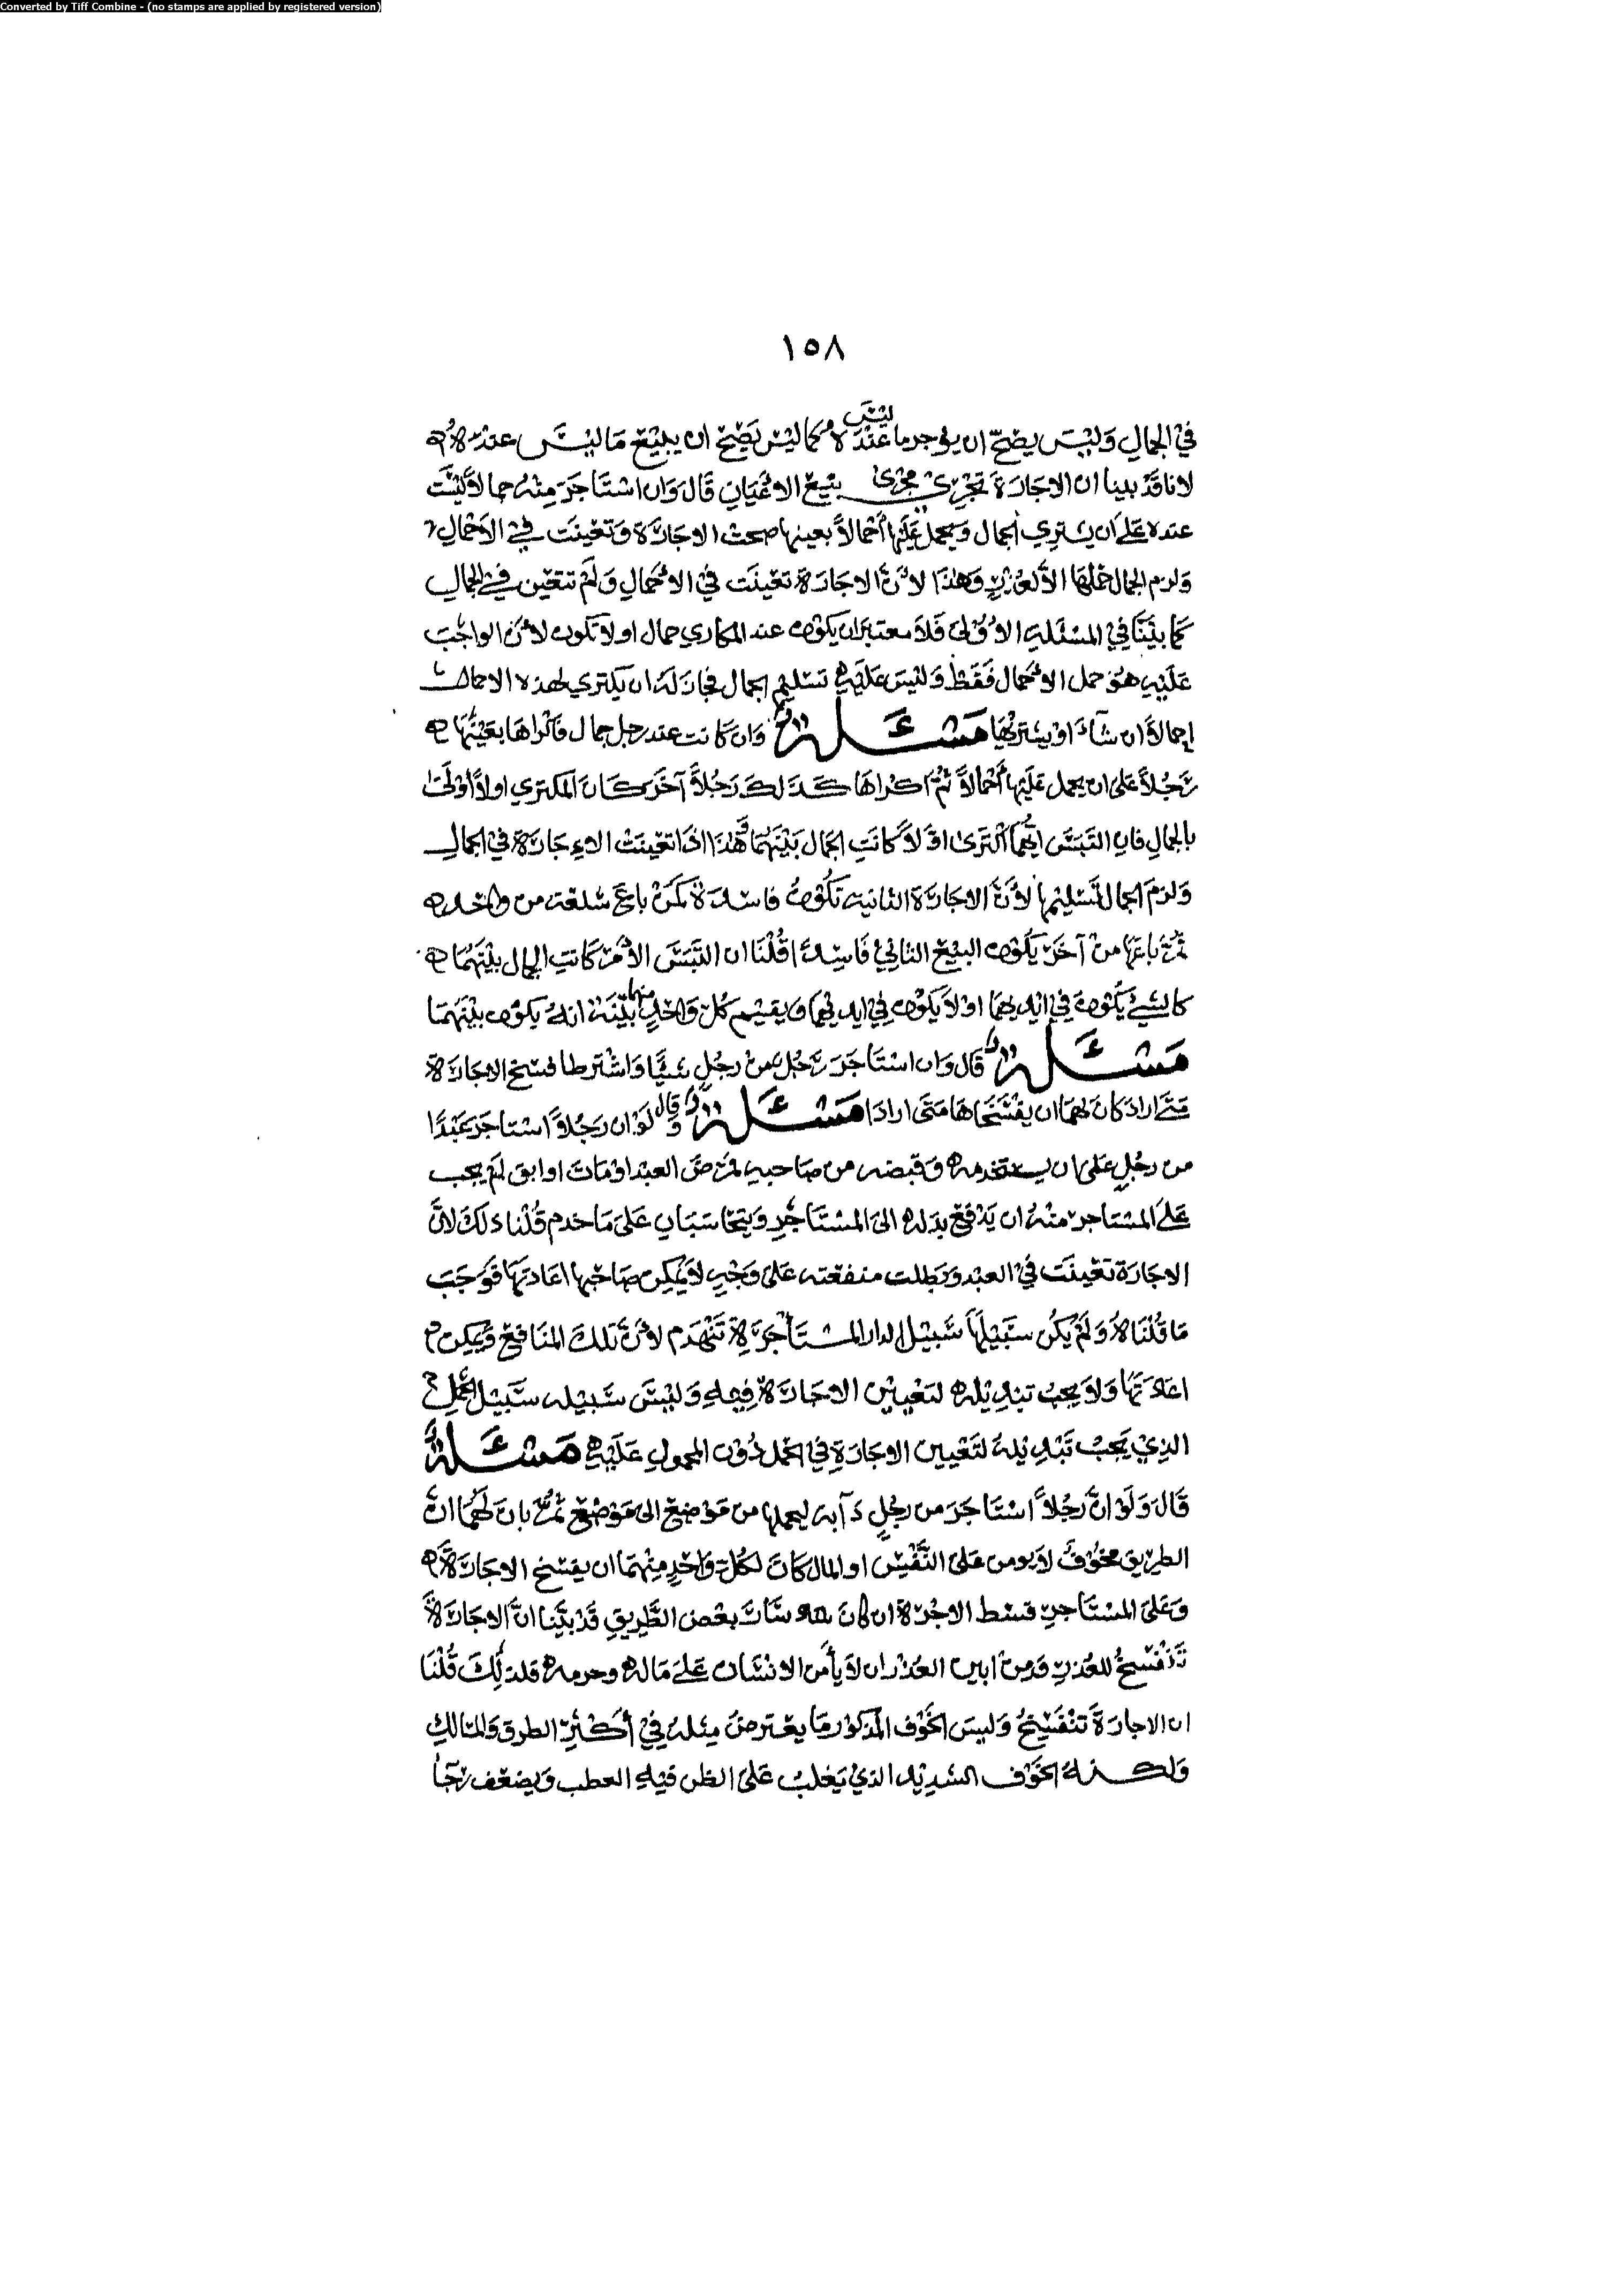 Converted by Tiff Combine - (no stamps are applied by registered version)
١٥٨
في الجمالِ وَليسَ يصحّ ان يؤجر ما ليس عنْدَهُ كما ليْسَ يَصِحّ ان يبيْعَ مَا ليسَ عندهُ
لانا قدْ بينا ان الاجَارَةَ تجْرِيْ مجْرىٰ بيْع الاعْيَانِ قالَ وَان اسْتَاجَرَ مِنْهُ جمالاً ليْسَت
عنده عَلىَ ان يشتري الجمال وَيحمل عَليْهَا أحْمالاً بعينها صحت الاجارَة وَتعَينَت في الاحْمالِ
وَلزم الجمال حملهَا الاَّ لعُذرٍ وَهٰذا لأنَّ الاجارَة تعَينَت في الاحْمالِ وَلمْ تتعَين في الجمالِ
كما بيَّنَّا في المسْئلةِ الأوْلىٰ فَلا معتبر ان يكوْن عند المكاري جمال او لا تكون لأن الواجب
عَليْهِ هوَ حمل الاحْمال فَقَط وَليْسَ عَليْهِ تسْليم الجمال فجازَ لهُ ان يكتري لهذه الاحمال
اجمالاً ان شآءَ اوْ يشترِيْهَا مَسْئَلَةٌ وَان كانت عند رجل جمال فأكراها بعَيْنِهَا
رَجُلاً علىٰ ان يحمل عَليْها أحْمالاً ثمَّ أكراها كَذَلكَ رَجُلاً آخَرَ كانَ المكتري اولاً أوْلىٰ
بالجمالِ فانِ التَبَسَ ايُّهمَا اكْتَرىٰ اوَّلاً كانَتِ الجمال بَيْنَهُمَا وَهٰذا اذا تعينَتْ الاجَارَةُ في الجمالِ
وَلزمَ الجمال تسْليمها لأنَّ الاجارَة الثانية تكُوْنُ فاسدَةً كمَنْ باعَ سلعَة من وَاحدٍ
ثمَّ باعَهَا منْ آخَرَ يكُوْن البيْع الثاني فَاسِداً قُلْنَا ان التبَسَ الأمْر كَانَتِ الجمال بيْنَهُمَا
كالشيْءِ يكُوْن في ايديهمَا اوْ لا يكُوْن في ايديهما وَيقيْم كلُّ وَاحِدٍ منهما بيِّنَةً انهُ يكوْن بيْنَهُمَا
مَسْئَلَةٌ قالَ وَان اسْتَاجَرَ رَجُل منْ رجُلٍ شيْئًا وَاشْترطا فسْخ الاجَارَة
متىٰ ارادَ كانَ لهما ان يفْسَخَاهَا مَتىٰ ارادَا مَسْئَلَةٌ قال وَلوْ ان رَجُلاً استاجَرَ عَبْدًا
من رجُلٍ علىٰ ان يستخدمه وَقبضه من صَاحبهِ فمرضَ العبد اوْ ماتَ او ابق لمْ يجب
عَلىَ المسْتاجر منْهُ ان يَدْفعَ بدَله الىٰ المسْتَاجِرِ وَيتحَاسَبَانِ عَلىٰ مَا خدم قُلْنا ذلكَ لأنَّ
الاجَارَة تعَينَت في العبْد وَبطلت منفعته عَلىٰ وَجْهٍ لا يُمكِن صَاحبهَا اعَادَتهَا فوَجَبَ
مَا قُلْنَاهُ وَلَمْ يكُن سَبيْلهَا سَبيْل الدار المسْتَأجَرَةِ تَنْهَدم لأنَّ تلكَ المنَافعَ يمْكِن
اعَادَتهَا وَلا يجبُ تبْدِيْله لتَعييْن الاجَارَة فِيْهِ وَليْسَ سَبيْله سَبيْل الحمْلِ
الذِيْ يَجبُ تَبْدِيْلهُ لتَعْيين الاجَارَةِ في الحمْل دُوْنَ المحْمول عَليْهِ مَسْئَلَةٌ
قالَ وَلَوْ انَّ رَجُلاً اسْتَاجَرَ من رجُلٍ دَآبة ليحملها من مَوْضِعٍ الىٰ مَوْضِعٍ ثمَّ بانَ لَهُمَا انَّ
الطرِيْق مخوْفٌ لا يومن عَلىٰ النَّفْسِ او المال كانَ لكُلّ وَاحِدٍ مِنْهُمَا ان يفسْخَ الاجَارَةَ
وَعَلىٰ المسْتاجرِ قسْط الاجْرَة ان كانَ سَارَ بعْضَ الطّرِيقِ قَدْ بيَّنَا انَّ الاجَارَةَ
تَنْفَسِخُ للعُذرِ وَمِنْ ابينِ العُذْر ان لا يأمن الانسَان عَلىٰ مَالهِ وحرمهِ فلذلِكَ قُلْنَا
ان الاجارَةَ تنْفَسِخُ وَليسَ الخوْف المذكوْر مَا يعْترضُ مِثلهُ فيْ أكْثَرِ الطرق وَالمسَالكِ
وَلكنهُ الخوْف الشدِيْد الذيْ يَغلبُ عَلىٰ الظنِّ فيْهِ العطب وَيضعف رَجَآ